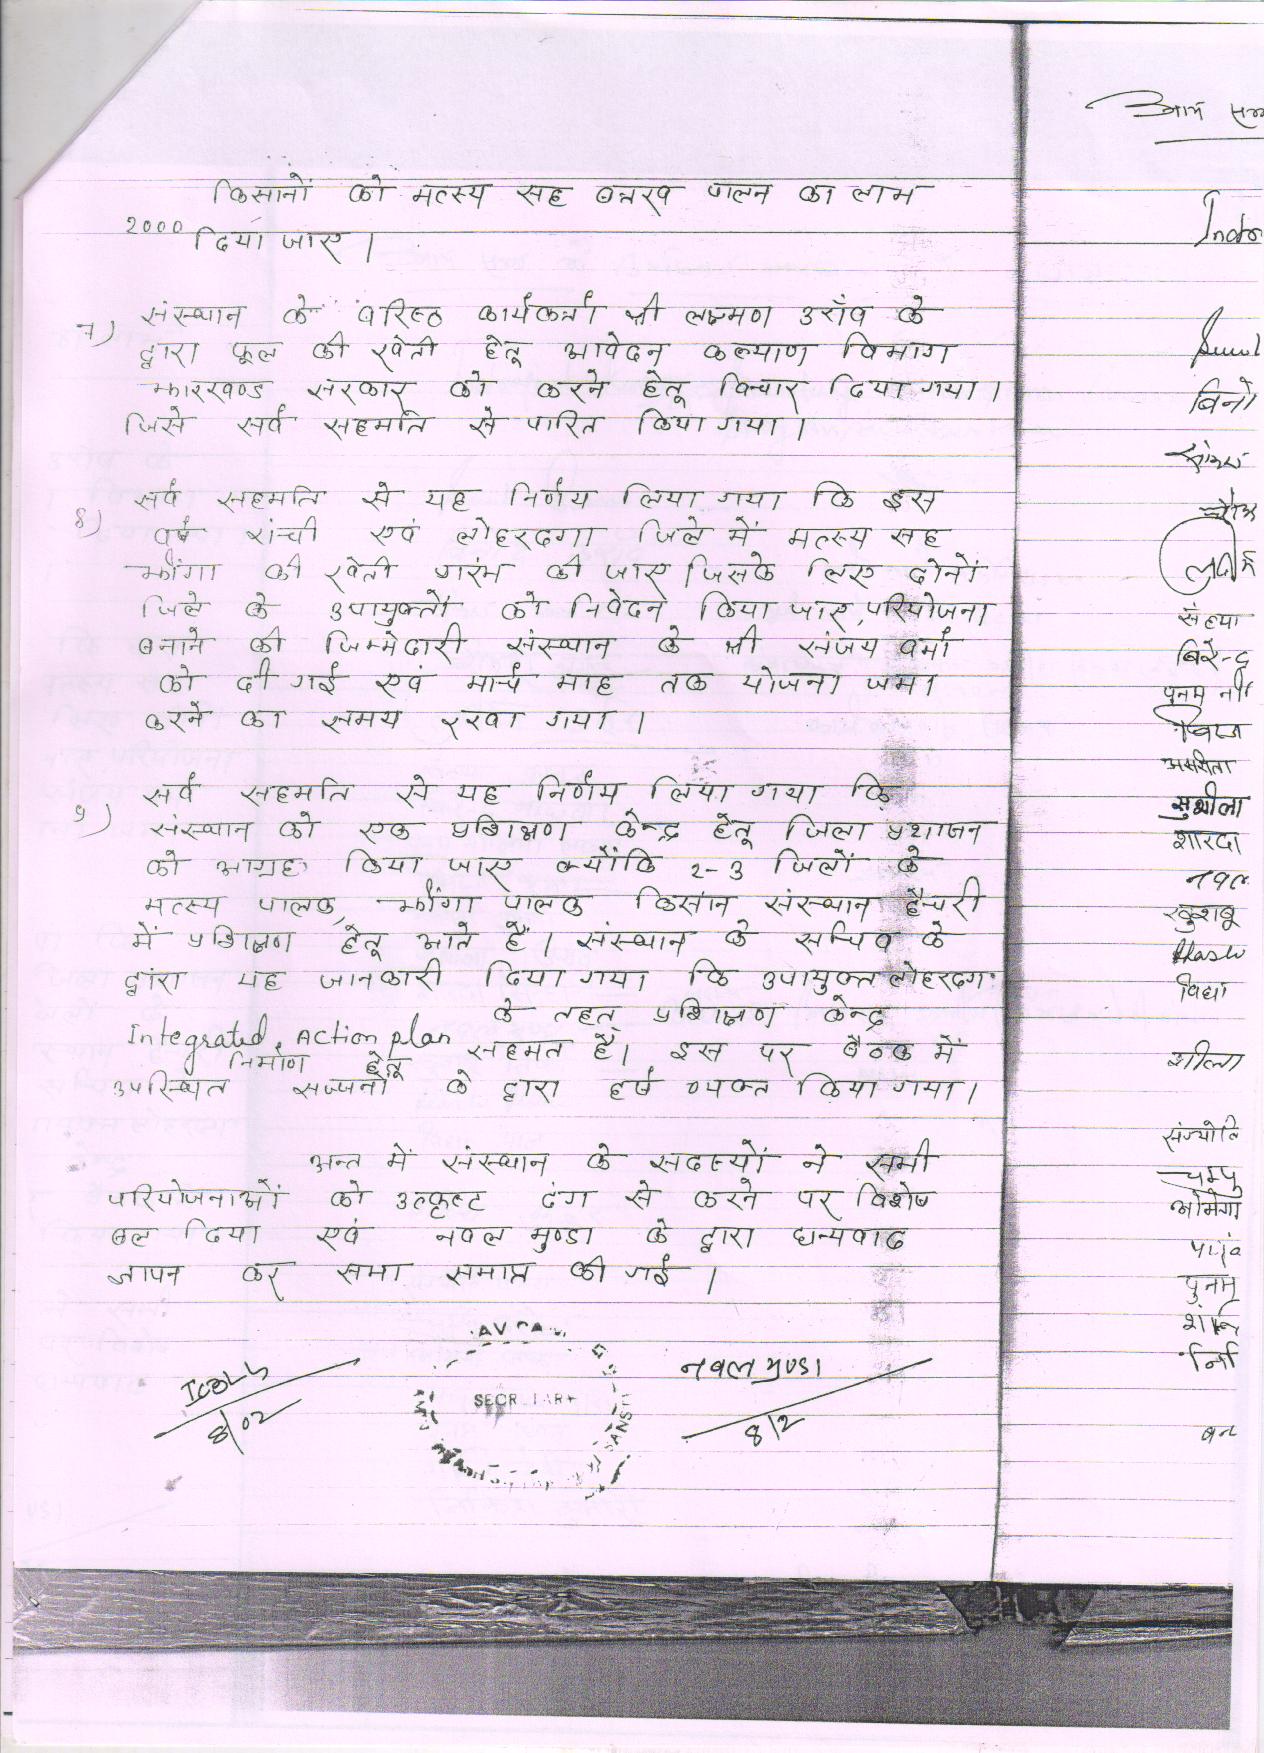 किसानों को मत्स्य सह बत्तख पालन का लाभ
2000 दिया जाए।
7) संस्थान के वरिष्ठ कार्यकर्त्ता श्री लक्ष्मण उराँव के
द्वारा फूल की खेती हेतू आवेदन कल्याण विभाग
झारखण्ड सरकार को करने हेतू विचार दिया गया।
जिसे सर्व सहमति से पारित किया गया।
8) सर्व सहमति से यह निर्णय लिया गया कि इस
वर्ष रांची एवं लोहरदगा जिले में मत्स्य सह
झींगा की खेती प्रारंभ की जाए जिसके लिए दोनों
जिले के उपायुक्तों को निवेदन किया जाए, परियोजना
बनाने की जिम्मेदारी संस्थान के श्री संजय वर्मा
को दी गई एवं मार्च माह तक योजना जमा
करने का समय रखा गया।
9) सर्व सहमति से यह निर्णय लिया गया कि
संस्थान को एक प्रशिक्षण केन्द्र हेतू जिला प्रशासन
को आग्रह किया जाए क्योंकि 2-3 जिलों के
मत्स्य पालक, झींगा पालक किसान संस्थान हैचरी
में प्रशिक्षण हेतू आते हैं। संस्थान के सचिव के
द्वारा यह जानकारी दिया गया कि उपायुक्त लोहरदगा
Integrated Action plan के तहत प्रशिक्षण केन्द्र
निर्माण हेतू सहमत हैं। इस पर बैठक में
उपस्थित सज्जनों के द्वारा हर्ष व्यक्त किया गया।
अन्त में संस्थान के सदस्यों ने सभी
परियोजनाओं को उत्कृष्ट ढंग से करने पर विशेष
बल दिया एवं नवल मुण्डा के द्वारा धन्यवाद
ज्ञापन कर सभा समाप्त की गई।
8/02
SECRETARY
नवल मुण्डा
8/2
आम
बिनो
संध्या
बिरेन्द्र
पुनम
सुशीला
शारदा
नवल
खुशबू
विद्या
शीला
चम्पु
पुनम